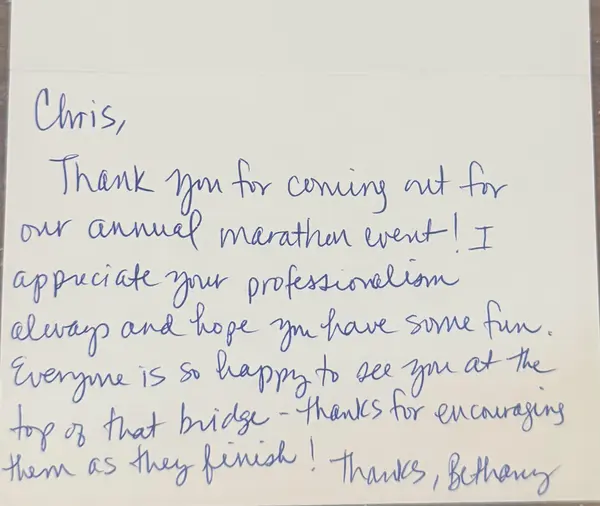 Chris,
Thank you for coming out for
our annual marathon event! I
appreciate your professionalism
always and hope you have some fun.
Everyone is so happy to see you at the
top of that bridge - thanks for encouraging
them as they finish! Thanks, Bethany